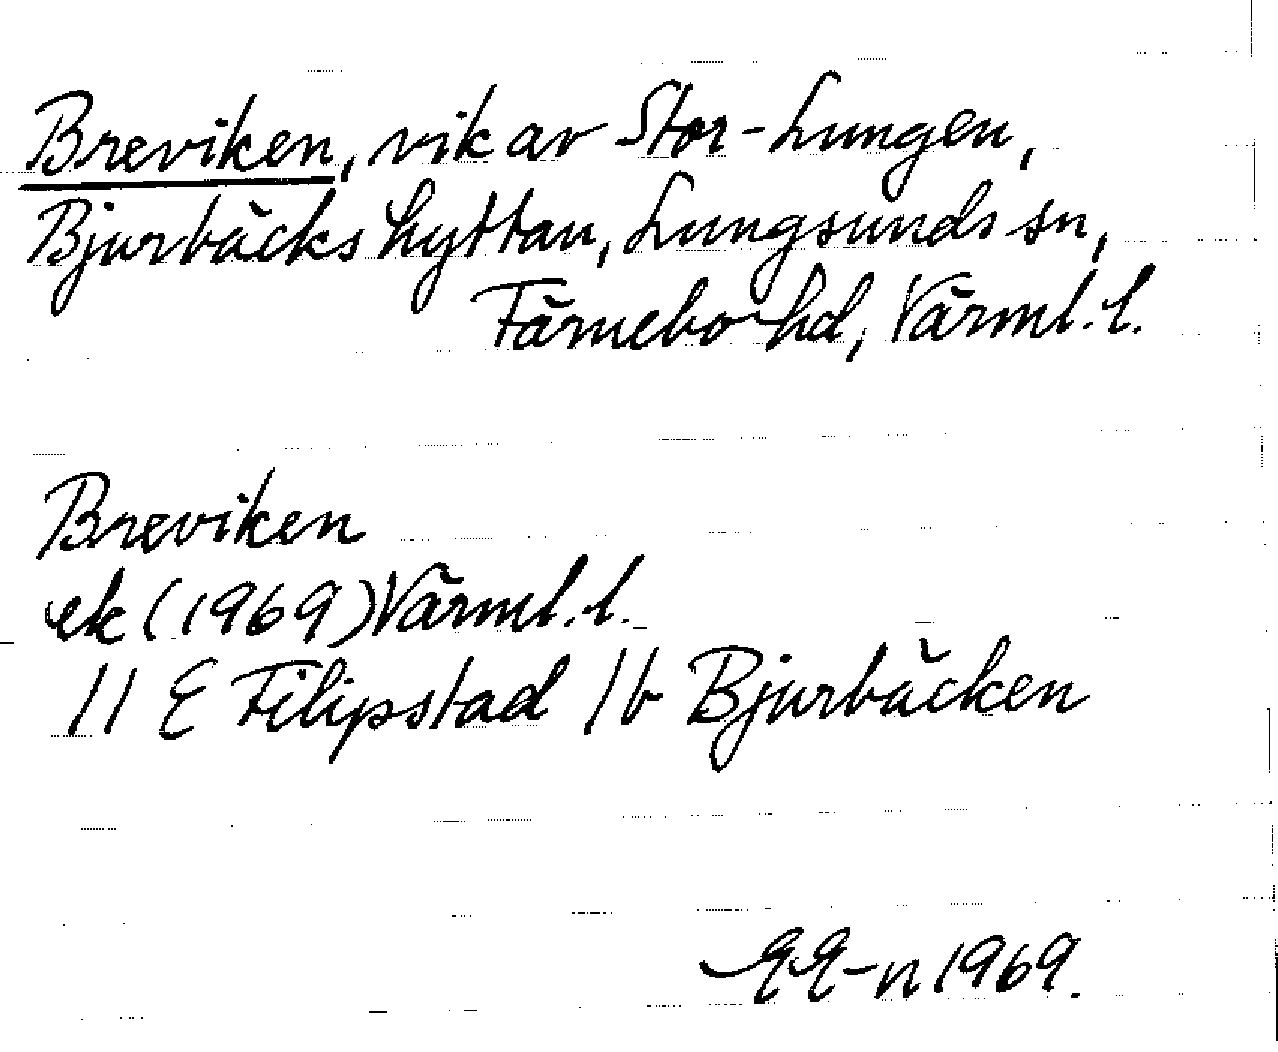 Breviken, vik av Stor-Lungen,
Bjurbäckshyttan, Lungsunds sn,
Färnebo hd, Värml. l.
Breviken
ek (1969) Värml. l.
11 E Filipstad 1b Bjurbäcken
EE-n 1969.